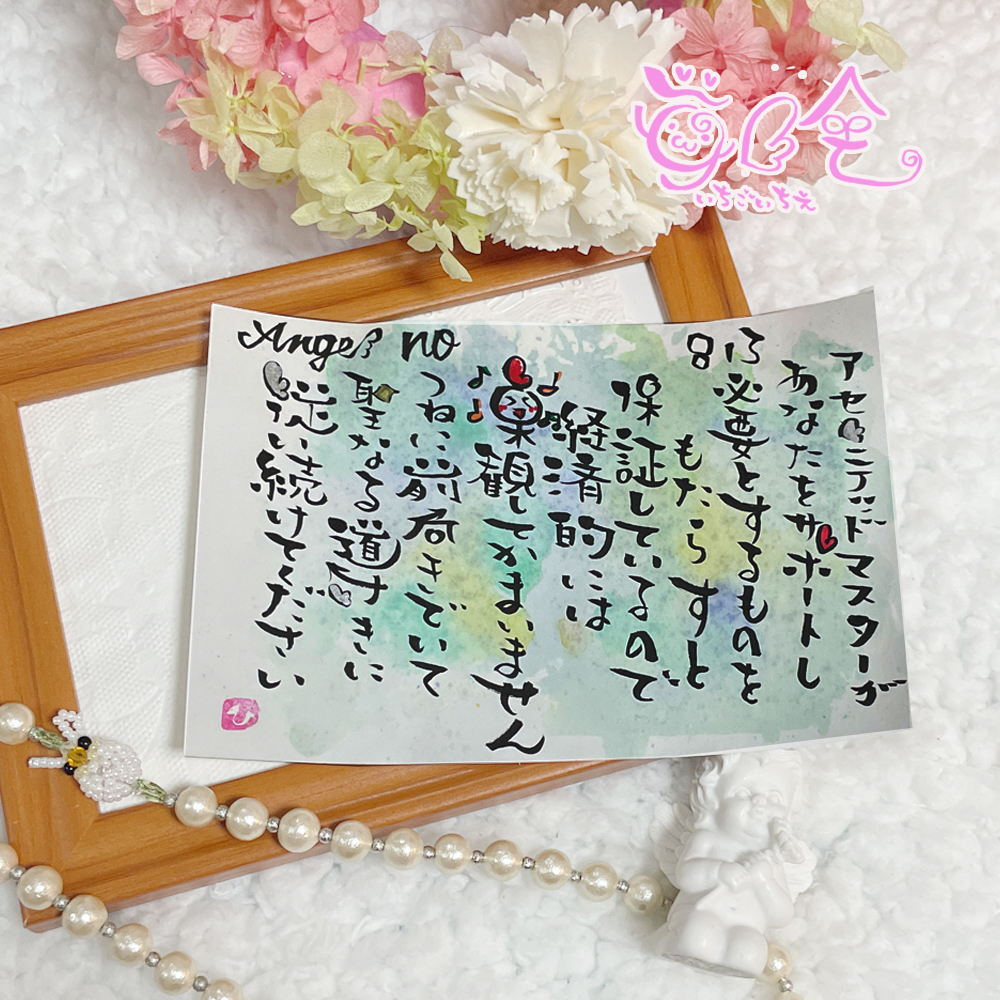 Angel no 813
アセンデッドマスターが
あなたをサポートし
必要とするものを
もたらすと
保証しているので
経済的には
楽観してかまいません
つねに前向きでいて
聖なる導きに
従い続けてください
いちごいちえ